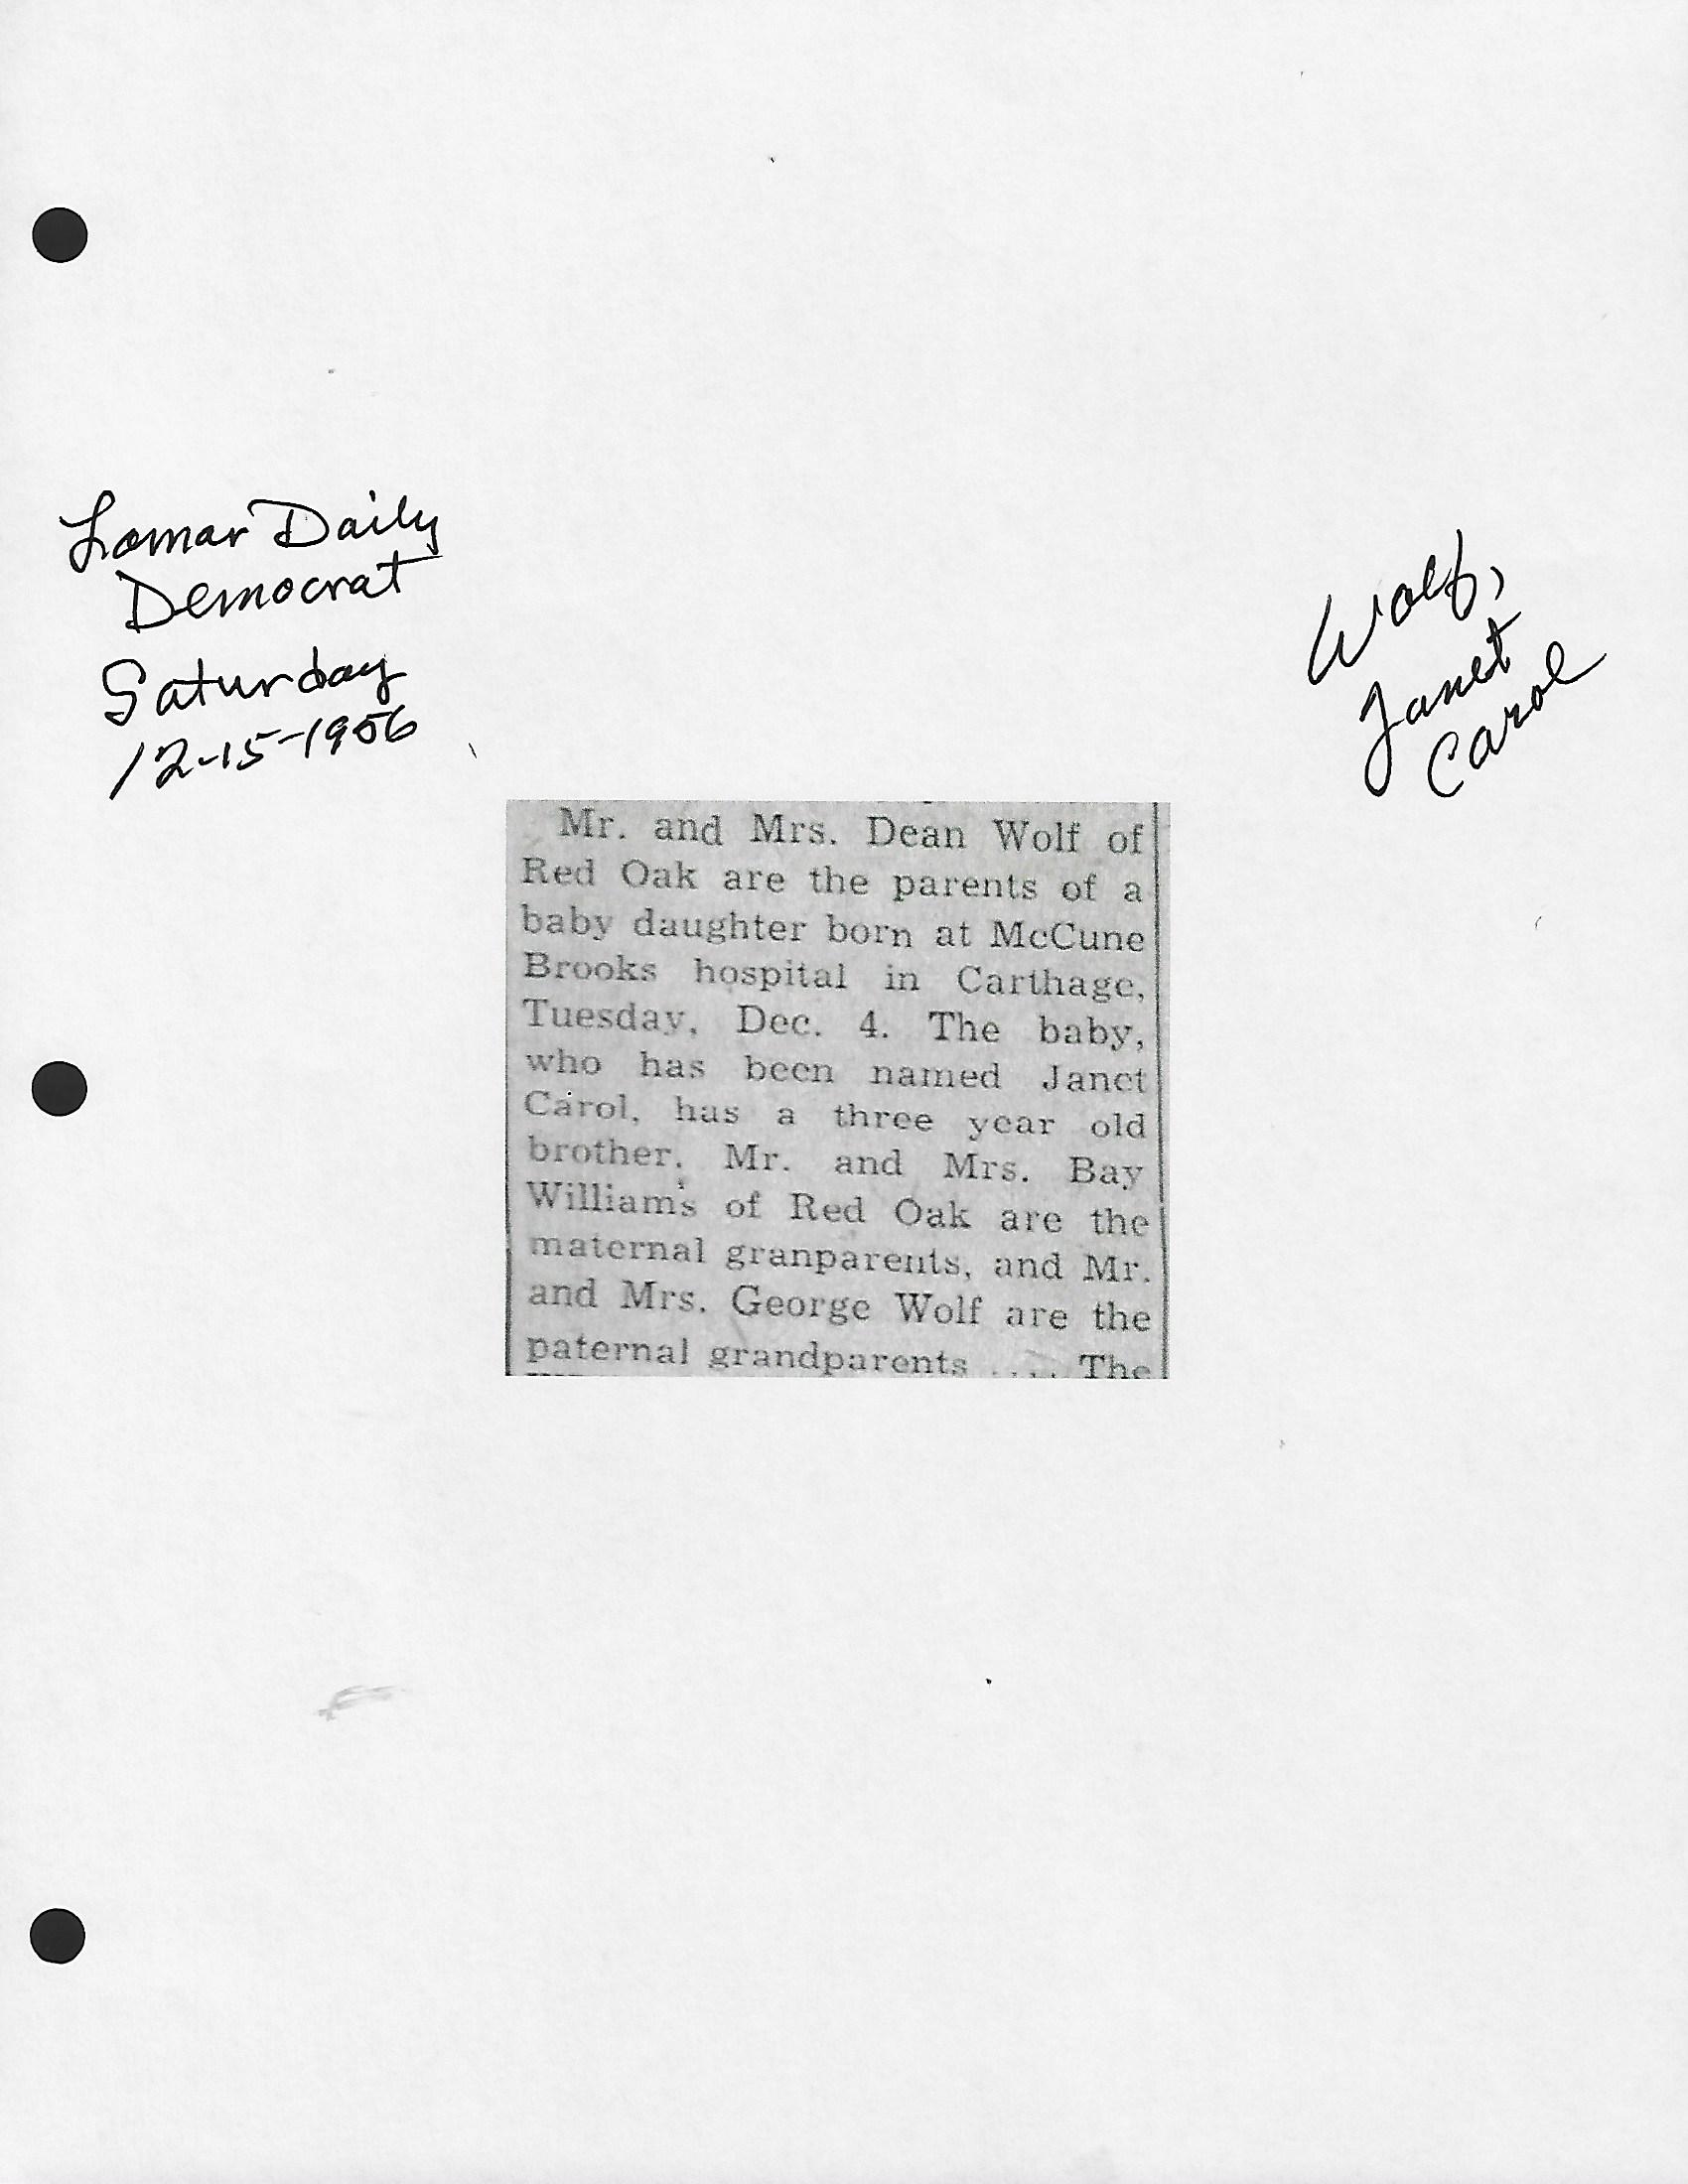 Lamar Daily
Democrat
Saturday
12-15-1956
Wolf,
Janet
Carol
Mr. and Mrs. Dean Wolf of
Red Oak are the parents of a
baby daughter born at McCune
Brooks hospital in Carthage,
Tuesday, Dec. 4. The baby,
who has been named Janet
Carol, has a three year old
brother. Mr. and Mrs. Bay
Williams of Red Oak are the
maternal granparents, and Mr.
and Mrs. George Wolf are the
paternal grandparents .... The